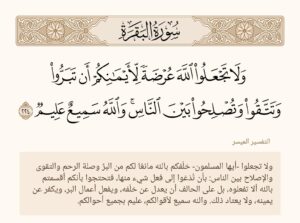 سُورَةُ البَقَرَةِ
وَلَا تَجۡعَلُواْ ٱللَّهَ عُرۡضَةٗ لِّأَيۡمَٰنِكُمۡ أَن تَبَرُّواْ
وَتَتَّقُواْ وَتُصۡلِحُواْ بَيۡنَ ٱلنَّاسِۚ وَٱللَّهُ سَمِيعٌ عَلِيمٞ ٢٢٤
التفسير الميسر
ولا تجعلوا -أيها المسلمون- حلفكم بالله مانعًا لكم من البرِّ وصلة الرحم والتقوى
والإصلاح بين الناس: بأن تُدعَوا إلى فعل شيء منها، فتحتجوا بأنكم أقسمتم
بالله ألا تفعلوه، بل على الحالف أن يعدل عن حَلْفه، ويفعل أعمال البر، ويكفر عن
يمينه، ولا يعتاد ذلك. والله سميع لأقوالكم، عليم بجميع أحوالكم.